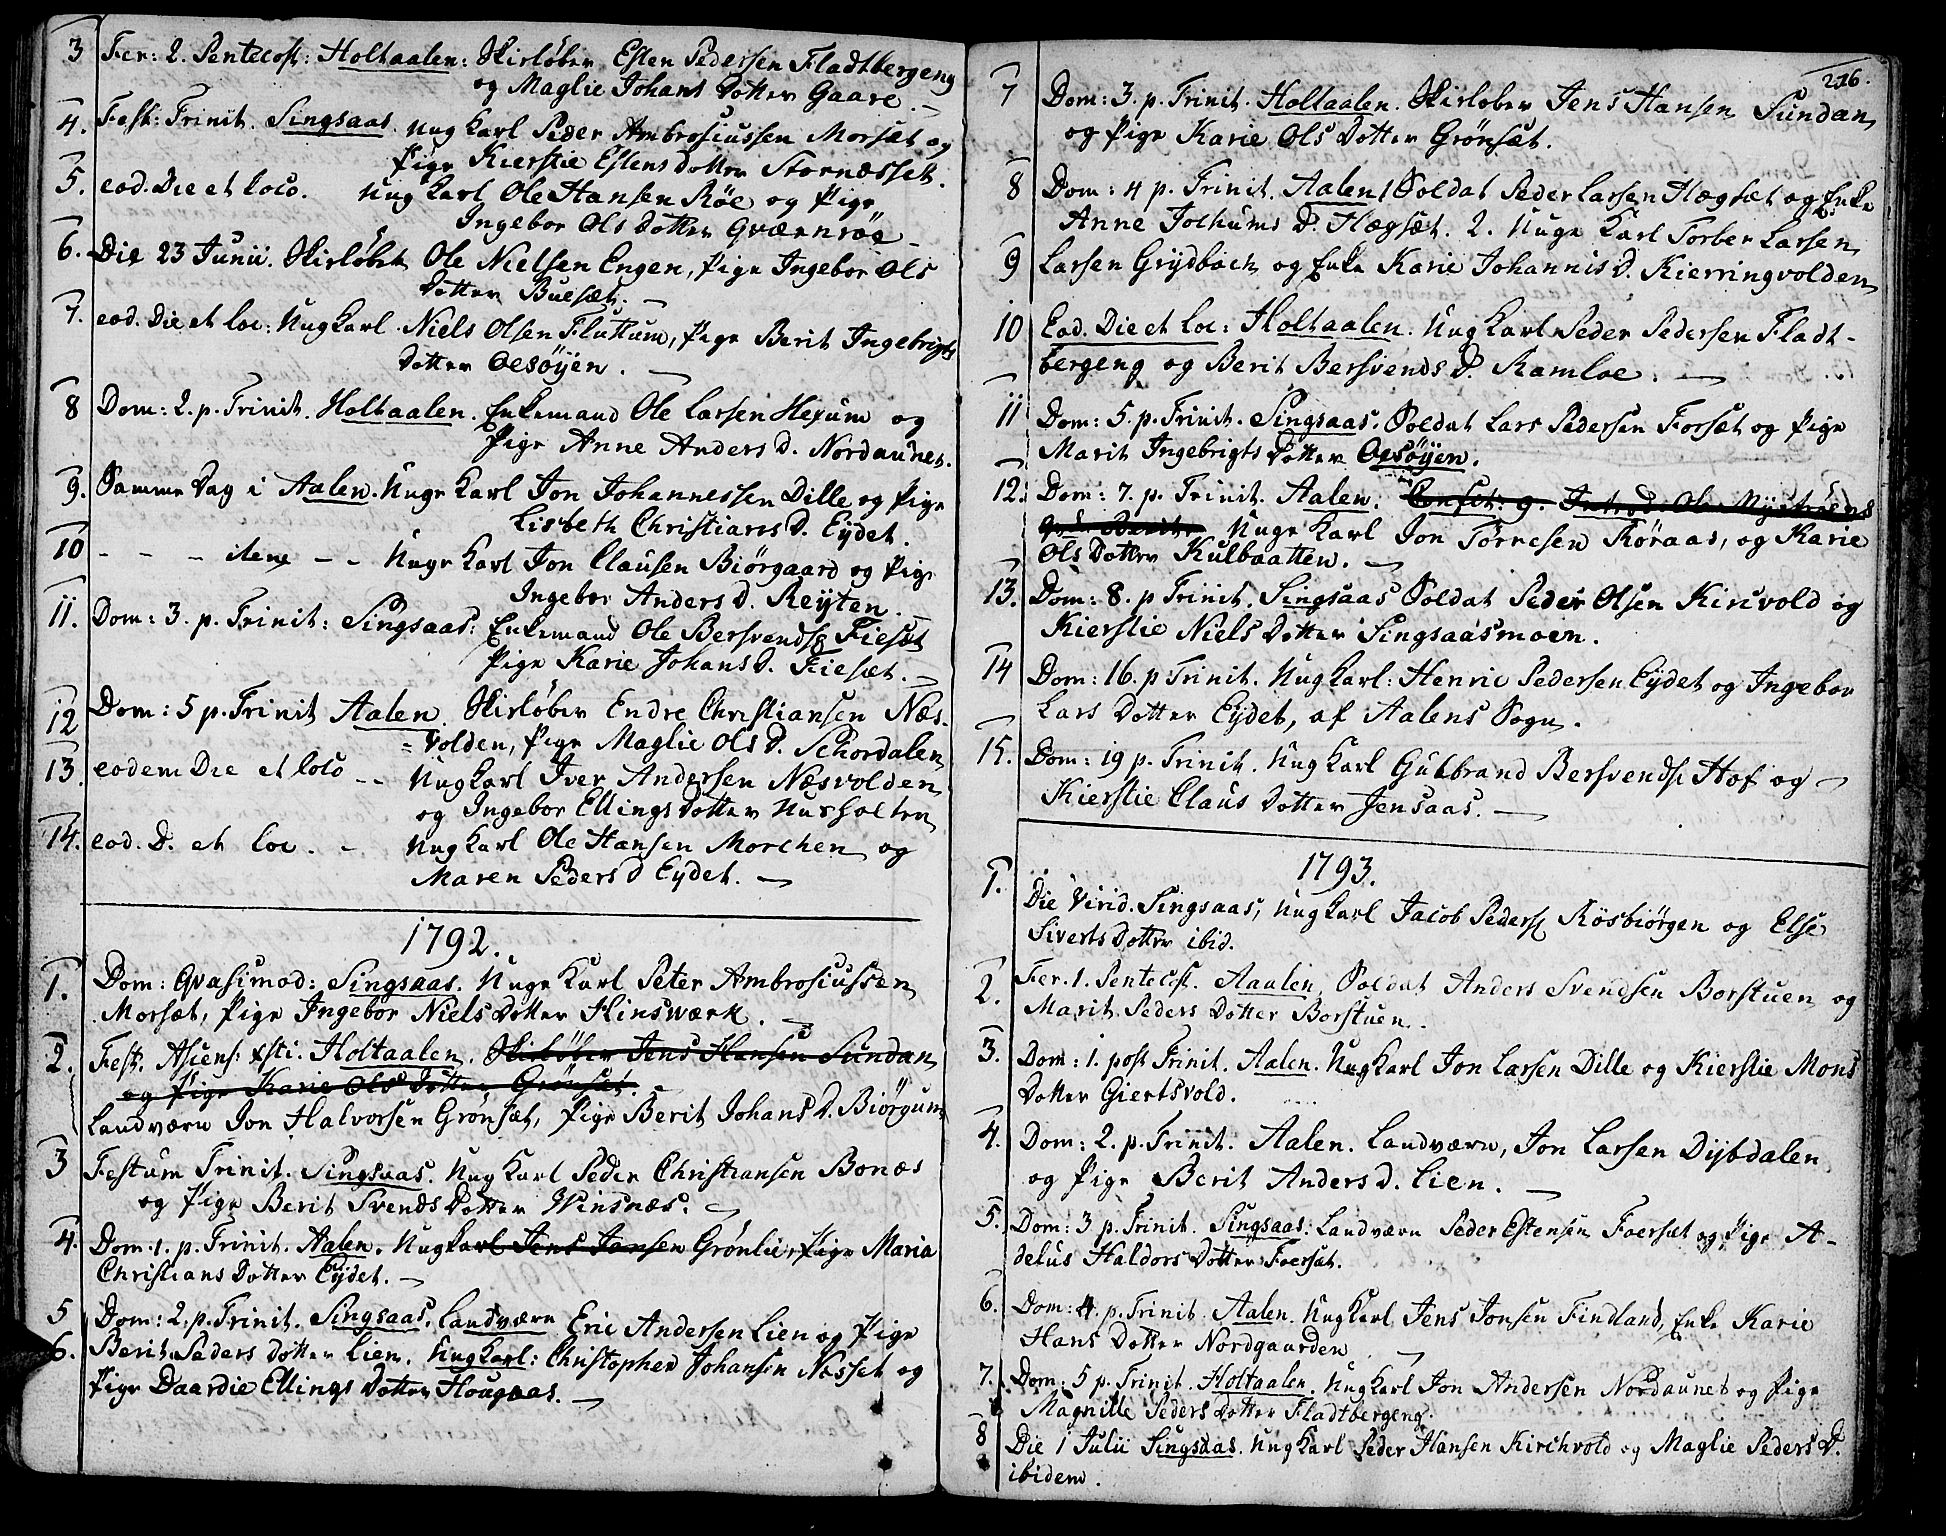 3 Fer: 2. Pentecost: Holtaalen: Skirløber Esten Pedersen Fladtbergeng
og Maglie Johans Dotter Gaare.
4. Fest: Trinit. Singsaas. Ung Karl Peder Ambrosiussen Morsæt og
Pige Kierstie Estens dotter Stornæsset.
5. eod. Die et loco. Ung Karl Ole Hansen Røe og Pige
Ingebor Ols Dotter Qværnrøe
6. Die 23 Junii. Skirløber Ole Nielsen Engen, Pige Ingebor Ols
Dotter Buesæt.
7. eod. Die et loc: Ung Karl Niels Olsen Fluttum, Pige Berit Ingebrigts
Dotter Oesøyen.
8 Dom: 2. p. Trinit. Holtaalen. Enkemand Ole Larsen Hexum og
Pige Anne Anders D. Nordaunet.
9. Samme Dag i Aalen. Unge Karl Jon Johannessen Dille og Pige
Lisbeth Christians D. Eydet.
10 - - - item - - Unge Karl Jon Clausen Biørgaard og Pige
Ingebor Anders D. Reyten.
11. Dom: 3. p. Trinit: Singsaas: Enkemand Ole Bersvends Fiesæt
Pige Karie Johans D. Fiesæt.
12 Dom: 5 p. Trinit Aalen. Skirløber Endre Christiansen Næs-
= volden, Pige Maglie Ols D. Schordalen
13. eodem Die et loco - - Ung Karl Iver Andersen Næsvolden
og Ingebor Ellings Dotter Husholten
14. eod. D. et loc. - Ung Karl Ole Hansen Morchen og
Maren Peders D Eydet.
1792.
1. Dom: Qvasimod: Singsaas. Unge Karl Peter Ambrosiussen
Morsæt, Pige Ingebor Niels Dotter Hinsværk.
2. Fest. Ascens: Xsti. Holtaalen. Skirløber Jens Hansen Sundan
og Pige Karie Ols Dotter Grønset.
Landværn Jon Halvorsen Grønsæt, Pige Berit Johans D. Biørgum
3 Festum Trinit. Singsaas. Ung Karl Peder Christiansen Bonæs
og Pige Berit Svends Dotter Winsnæs.
4. Dom: 1. p. Trinit. Aalen. Ung Karl Jens Jansen Grønlie, Pige Maria
Christians Dotter Eydet.
5 Dom: 2. p. Trinit. Singsaas. Landværn Eric Andersen Lien og Pige
6. Berit Peders Dotter Lien. Ung Karl: Christopher Johansen Næsset og
Pige Daardie Ellings Dotter Hougaas.
216.
7 Dom: 3. p. Trinit. Holtaalen. Skirløber Jens Hansen Sundan
og Pige Karie Ols Dotter Grønsæt.
8 Dom: 4 p. Trinit. Aalen 1 Soldat Peder Larsen Hægsæt og Enke
Anne Jochums D. Hægsæt. 2. Unge Karl Torber Larsen
9 Larsen Grydbach og Enke Karie Johannis D. Kierringvolden
10 Eod. Die et loc: Holtaalen. Ung Karl Peder Pedersen Fladt-
bergeng og Berit Bersvends D. Ramloe.
11 Dom: 5. p. Trinit. Singsaas. Soldat Lars Pedersen Forsæt og Pige
Marit Ingebrigts Dotter Oesøyen.
12. Dom: 7. p. Trinit. Aalen. Unge Karl Jon Tørresen Røraas, og Karie
Ols Dotter Kulbaatten.
13. Dom: 8. p Trinit. Singsaas Soldat Peder Olsen Kirivold og
Kierstie Niels Dotter Singsaasmoen.
14 Dom: 16. p Trinit. Ung Karl: Henric Pedersen Eydet og Ingebor
Lars Dotter Eydet, af Aalens Sogn.
15. Dom: 19 p. Trinit. Ung Karl Gulbrand Bersvends Hof og
Kierstie Claus Dotter Jensaas.
1793.
1. Die Virid. Singsaas, Ung Karl Jacob Peders Røsbiørgen og Else
Siverts Dotter ibid.
2. Fer. 1. Pentecst. Aaalen, Soldat Anders Svendsen Borstuen og
Marit Peders Dotter Borstuen.
3. Dom: 1. post Trinit. Aalen. Ung Karl Jon Larsen Dille og Kierstie Mons
Dotter Giertsvold.
4. Dom: 2. p. Trinit. Aalen. Landværn, Jon Larsen Dybdalen
og Pige Berit Anders D. Lien.
5. Dom: 3 p. Trinit. Singsaas: Landværn Peder Estensen Foersæt og Pige A-
delus Haldors Dotter Foersæt.
6. Dom: 4. p. Trinit. Aalen. Ung Karl Jens Jonsen Findland, Enke Karie
Hans Dotter Nordgaarden
7. Dom: 5 p. Trinit. Holtaalen. Ung Karl Jon Andersen Nordaunet og Pige
Magnille Peders Dotter Fladtbergeng.
8 Die 1 Julii Singsaas. Ung Karl Peder Hansen Kirchvold og Maglie Peders D.
ibidem.